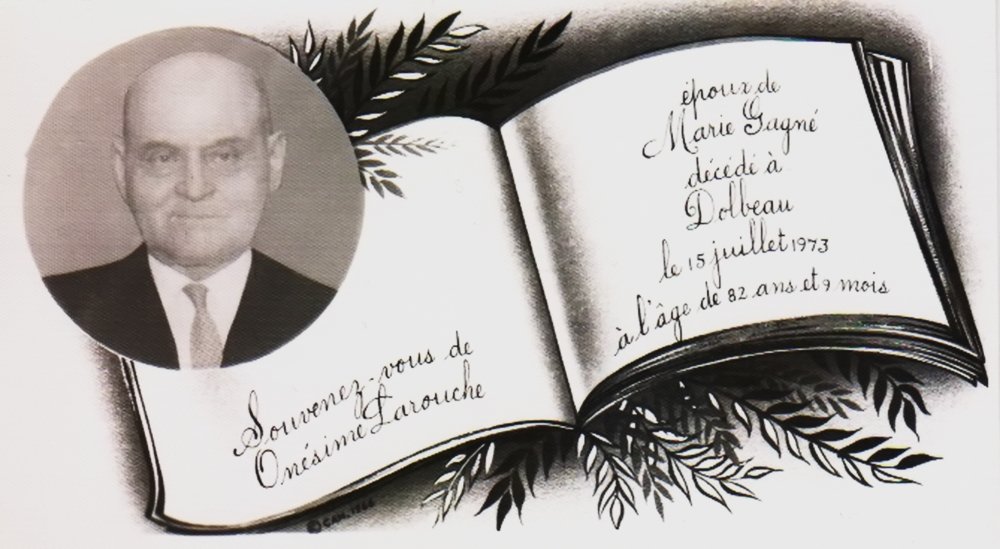 Souvenez-vous de
Onésime Larouche
époux de
Marie Gagné
décédé à
Dolbeau
le 15 juillet 1973
à l'âge de 82 ans et 9 mois